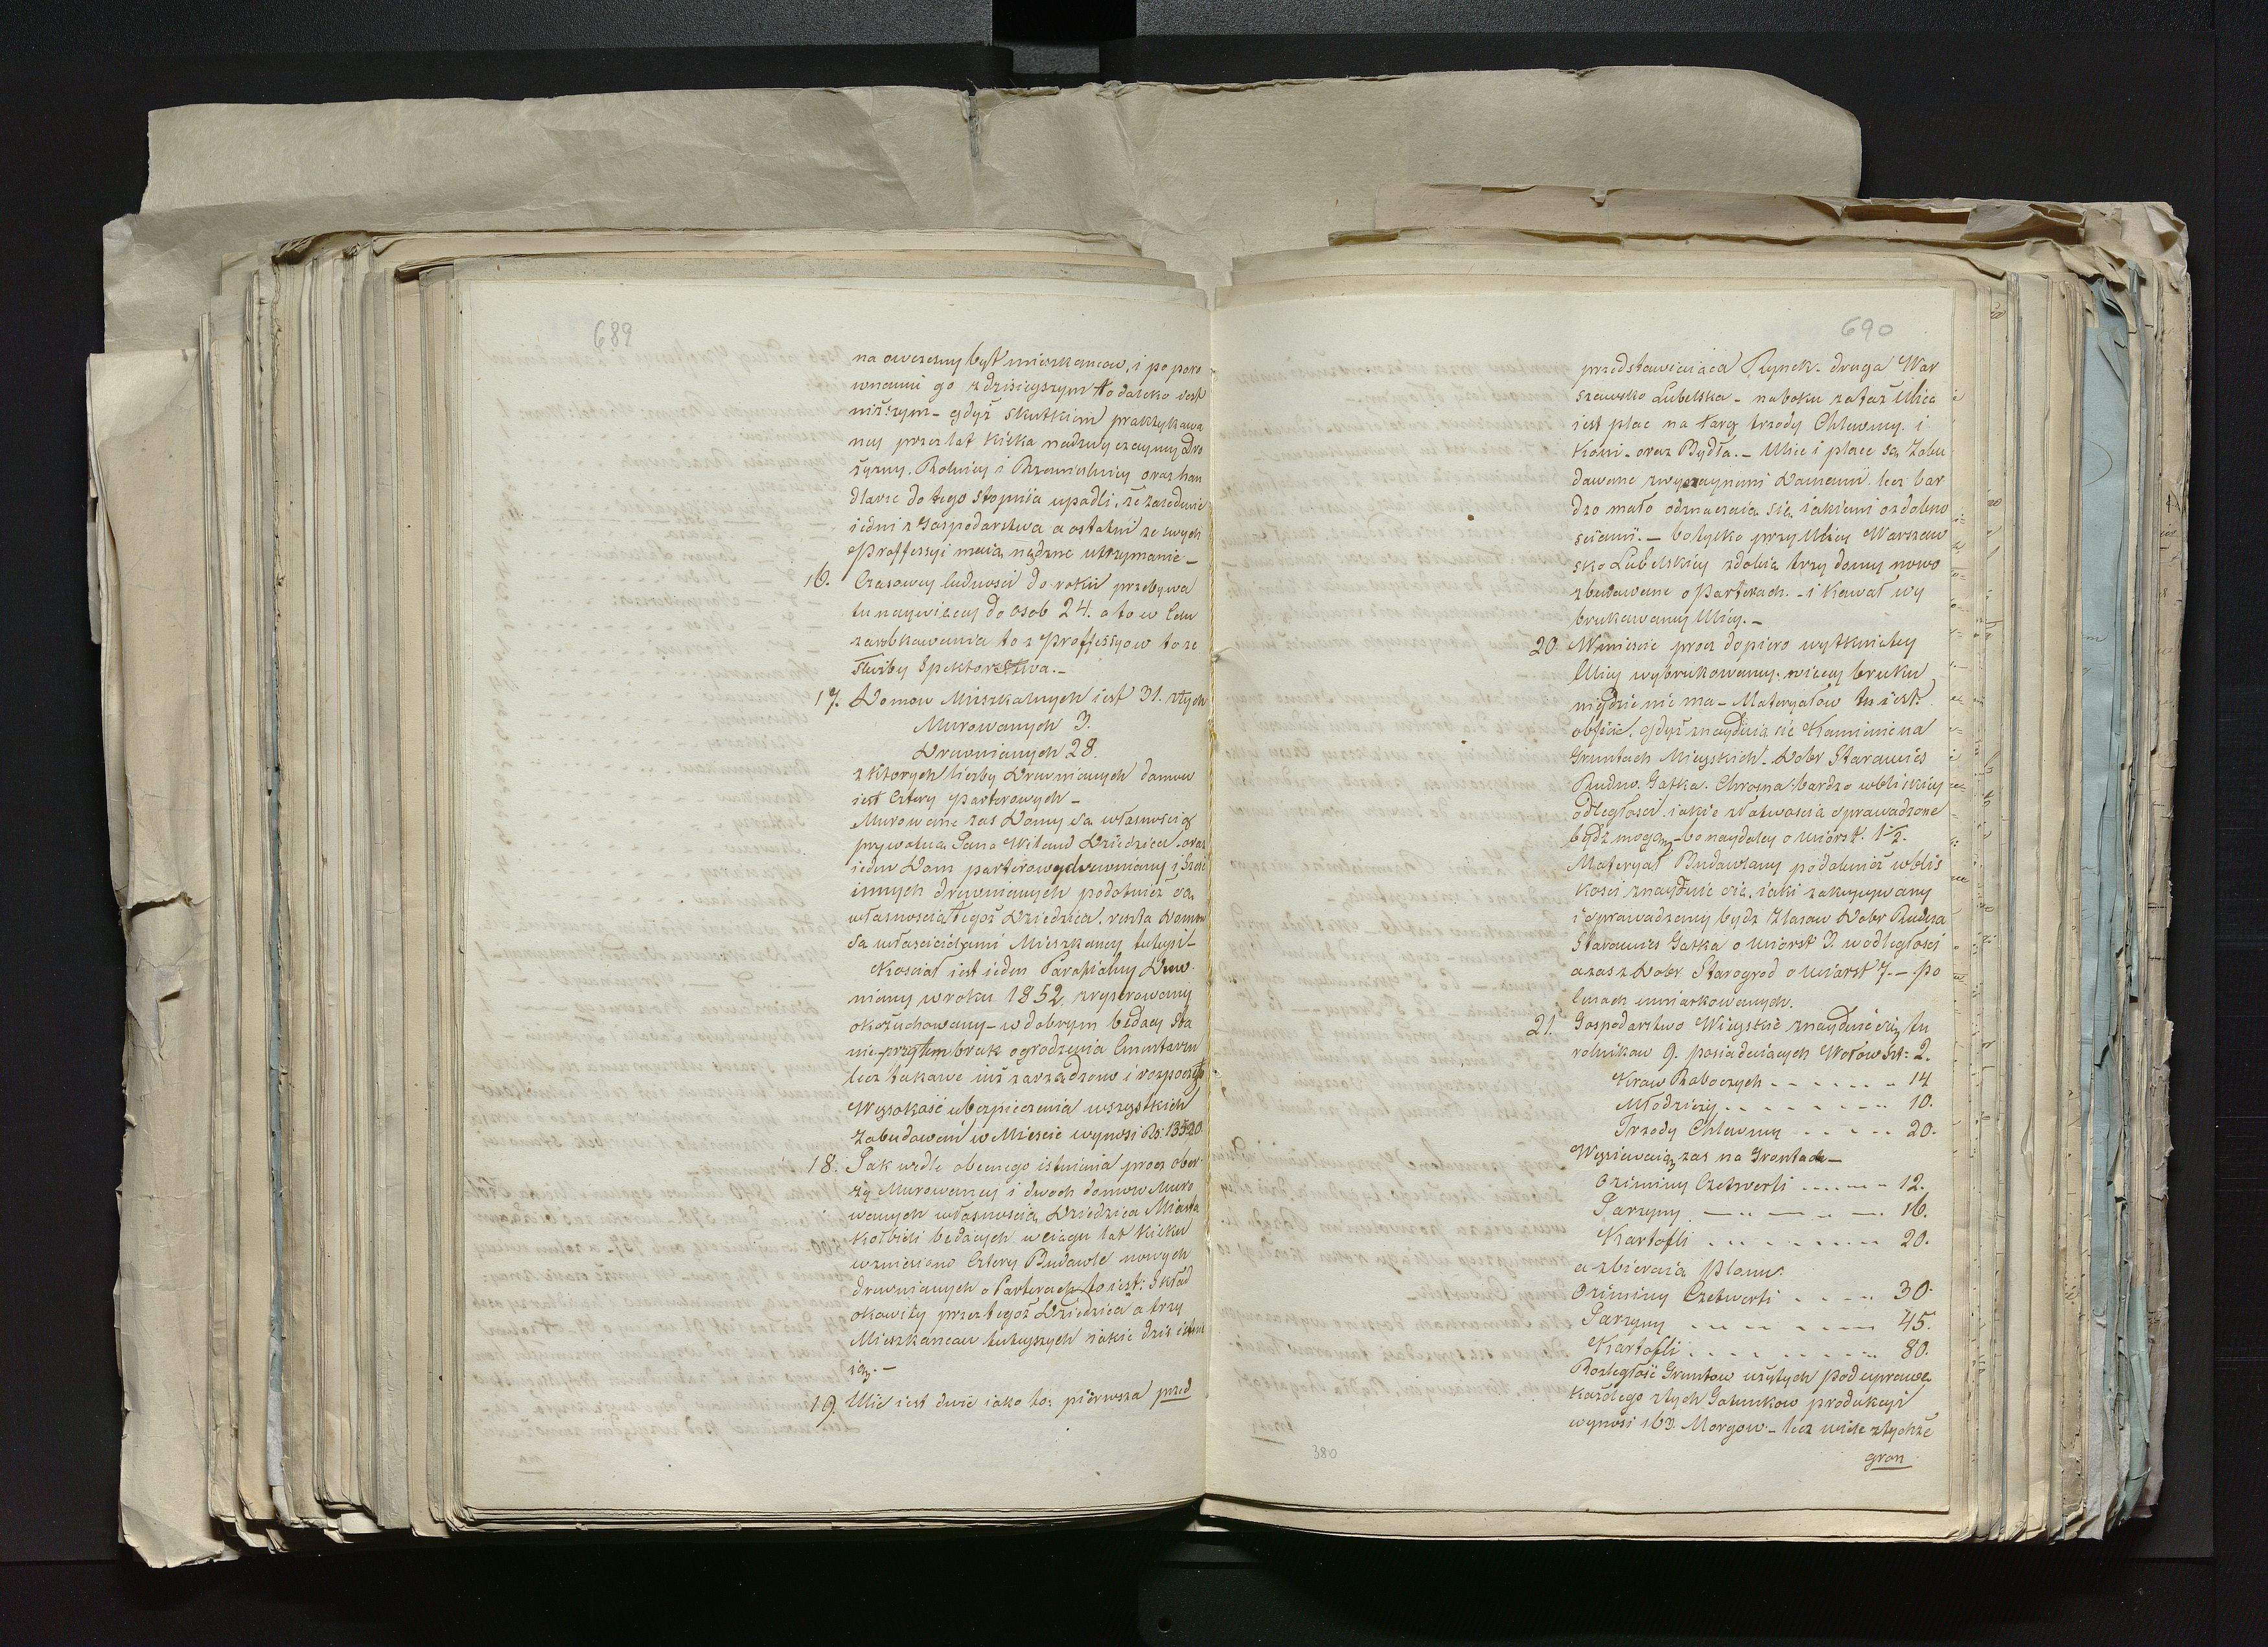 689
na owczesny byt mieszkancow, i po poro
wnaniu go z dzisieyszym to daleko jest
niższym - gdyż skutkiem praktykowa
ney przez lat kilka nadzwyczayney Dro
żyzny. Rolnicy i Rzemieślnicy oraz han
dlarze do tego stopnia upadli, że zaledwie
iedni z Gospodarstwa a ostatni ze swych
Proffessyi maią nędzne utrzymanie -
16. Czasowey ludności do roku przebywa
tu naywięcey do osob 24. a to w Celu
zarobkowania to z Proffessyow to ze
Służby Spektorstwa. -
17. Domow Mieszkalnych iest 31. z tych
Murowanych 3.
Drewnianych 28.
z ktorych liczby Drewnianych domow
iest Cztery parterowych -
Murowane zas Domy są własnością
prywatną Pana Wiland Dziedzica. oraz
ieden Dom parterowy drewniany i Sześć
innych drewnianych podobnież są
własnością tegoż Dziedzica. reszta Domow
są właścicielami Mieszkańcy tuteysi -
Kosciał iest ieden Parafialny Drew-
niany w roku 1852 zryperowany
okożuchowany - w dobrym będący sta
nie przytem brak ogrodzenia Cmentarza
lecz takowe iuż zarządzono i rozpoczęto
Wysokość ubezpieczenia wszystkich
Zabudowań w Mieście wynosi Rs: 13520
18. Jak wedle obecnego istnienia procz ober
ży Murowaney i dwoch domow Muro
wanych własnością Dziedzica Miasta
Kołbieli będących w ciągu lat kilku
wzniesiono Cztery Budowle nowych
drewnianych o Parterach to iest: Skład
okowity przez tegoż Dziedzica a trzy
Mieszkancow tuteyszych iakie dzis istnie
ią. -
19. Ulic iest dwie iako to: piérwsza przed
690
przedstawiaiąca Rynek. druga War
szawsko Lubelska - na boku za tąż Ulicą
iest plac na targ trzody Chlewney i
Koni - oraz Bydła. - Ulice i place są Zabu
dowane zwyczaynemi Domami. lecz bar
dzo mało odznaczaią się iakiemi ozdobno
sciami. - bo tylko przy Ulicy Warszaw
sko Lubelskiey zdobią trzy domy nowo
zbudowane o Parterach. - i kawał wy
brukowaney Ulicy. -
20. W mieście procz dopiero wytknietey
Ulicy wybrukowaney. więcey bruku
nigdzie nie ma - Materyałow tu iest
obfitość, gdyż znayduią się Kamienie na
Gruntach Mieyskich. Dobr Starawieś
Rudno. Gatka. Chrosna. bardzo w bliskiey
odległości iakie z łatwością sprowadzone
bydź mogą - bo naydaley o wiorst. 1 1/2.
Materyał Budowlany podobnież w blis
kości znayduie się, iaki zakupywany
i sprowadzany bydz z lasow Dobr Rudna
Starawieś Gatka o wiorst 3. w odległości
a zas z Dobr Starogrod o wiorst 7. - po
Cenach umiarkowanych.
21. Gospodarstwo Wieyskie znayduie się tu
rolnikow 9. posiadaiących Wołow Szt: 2.
Krow Roboczych - - - - - - - 14
Młodzieży - - - - - - - - 10.
Trzody Chlewney - - - - - 20.
Wysiewaią zas na Gruntach -
Oziminy Czetwerti - - - - - - 12.
Jarzyny - - - - - - 16.
Kartofli - - - - - - - - 20.
a zbieraią plonu.
Oziminy Czetwerti - - - - - 30.
Jarzyny - - - - - - - 45.
Kartofli - - - - - - - - 80.
Rozległość Gruntow użytych pod uprawę
każdego z tych Gatunkow produkcyi
wynosi 163. Morgow - lecz wiele z tychże
gron
380